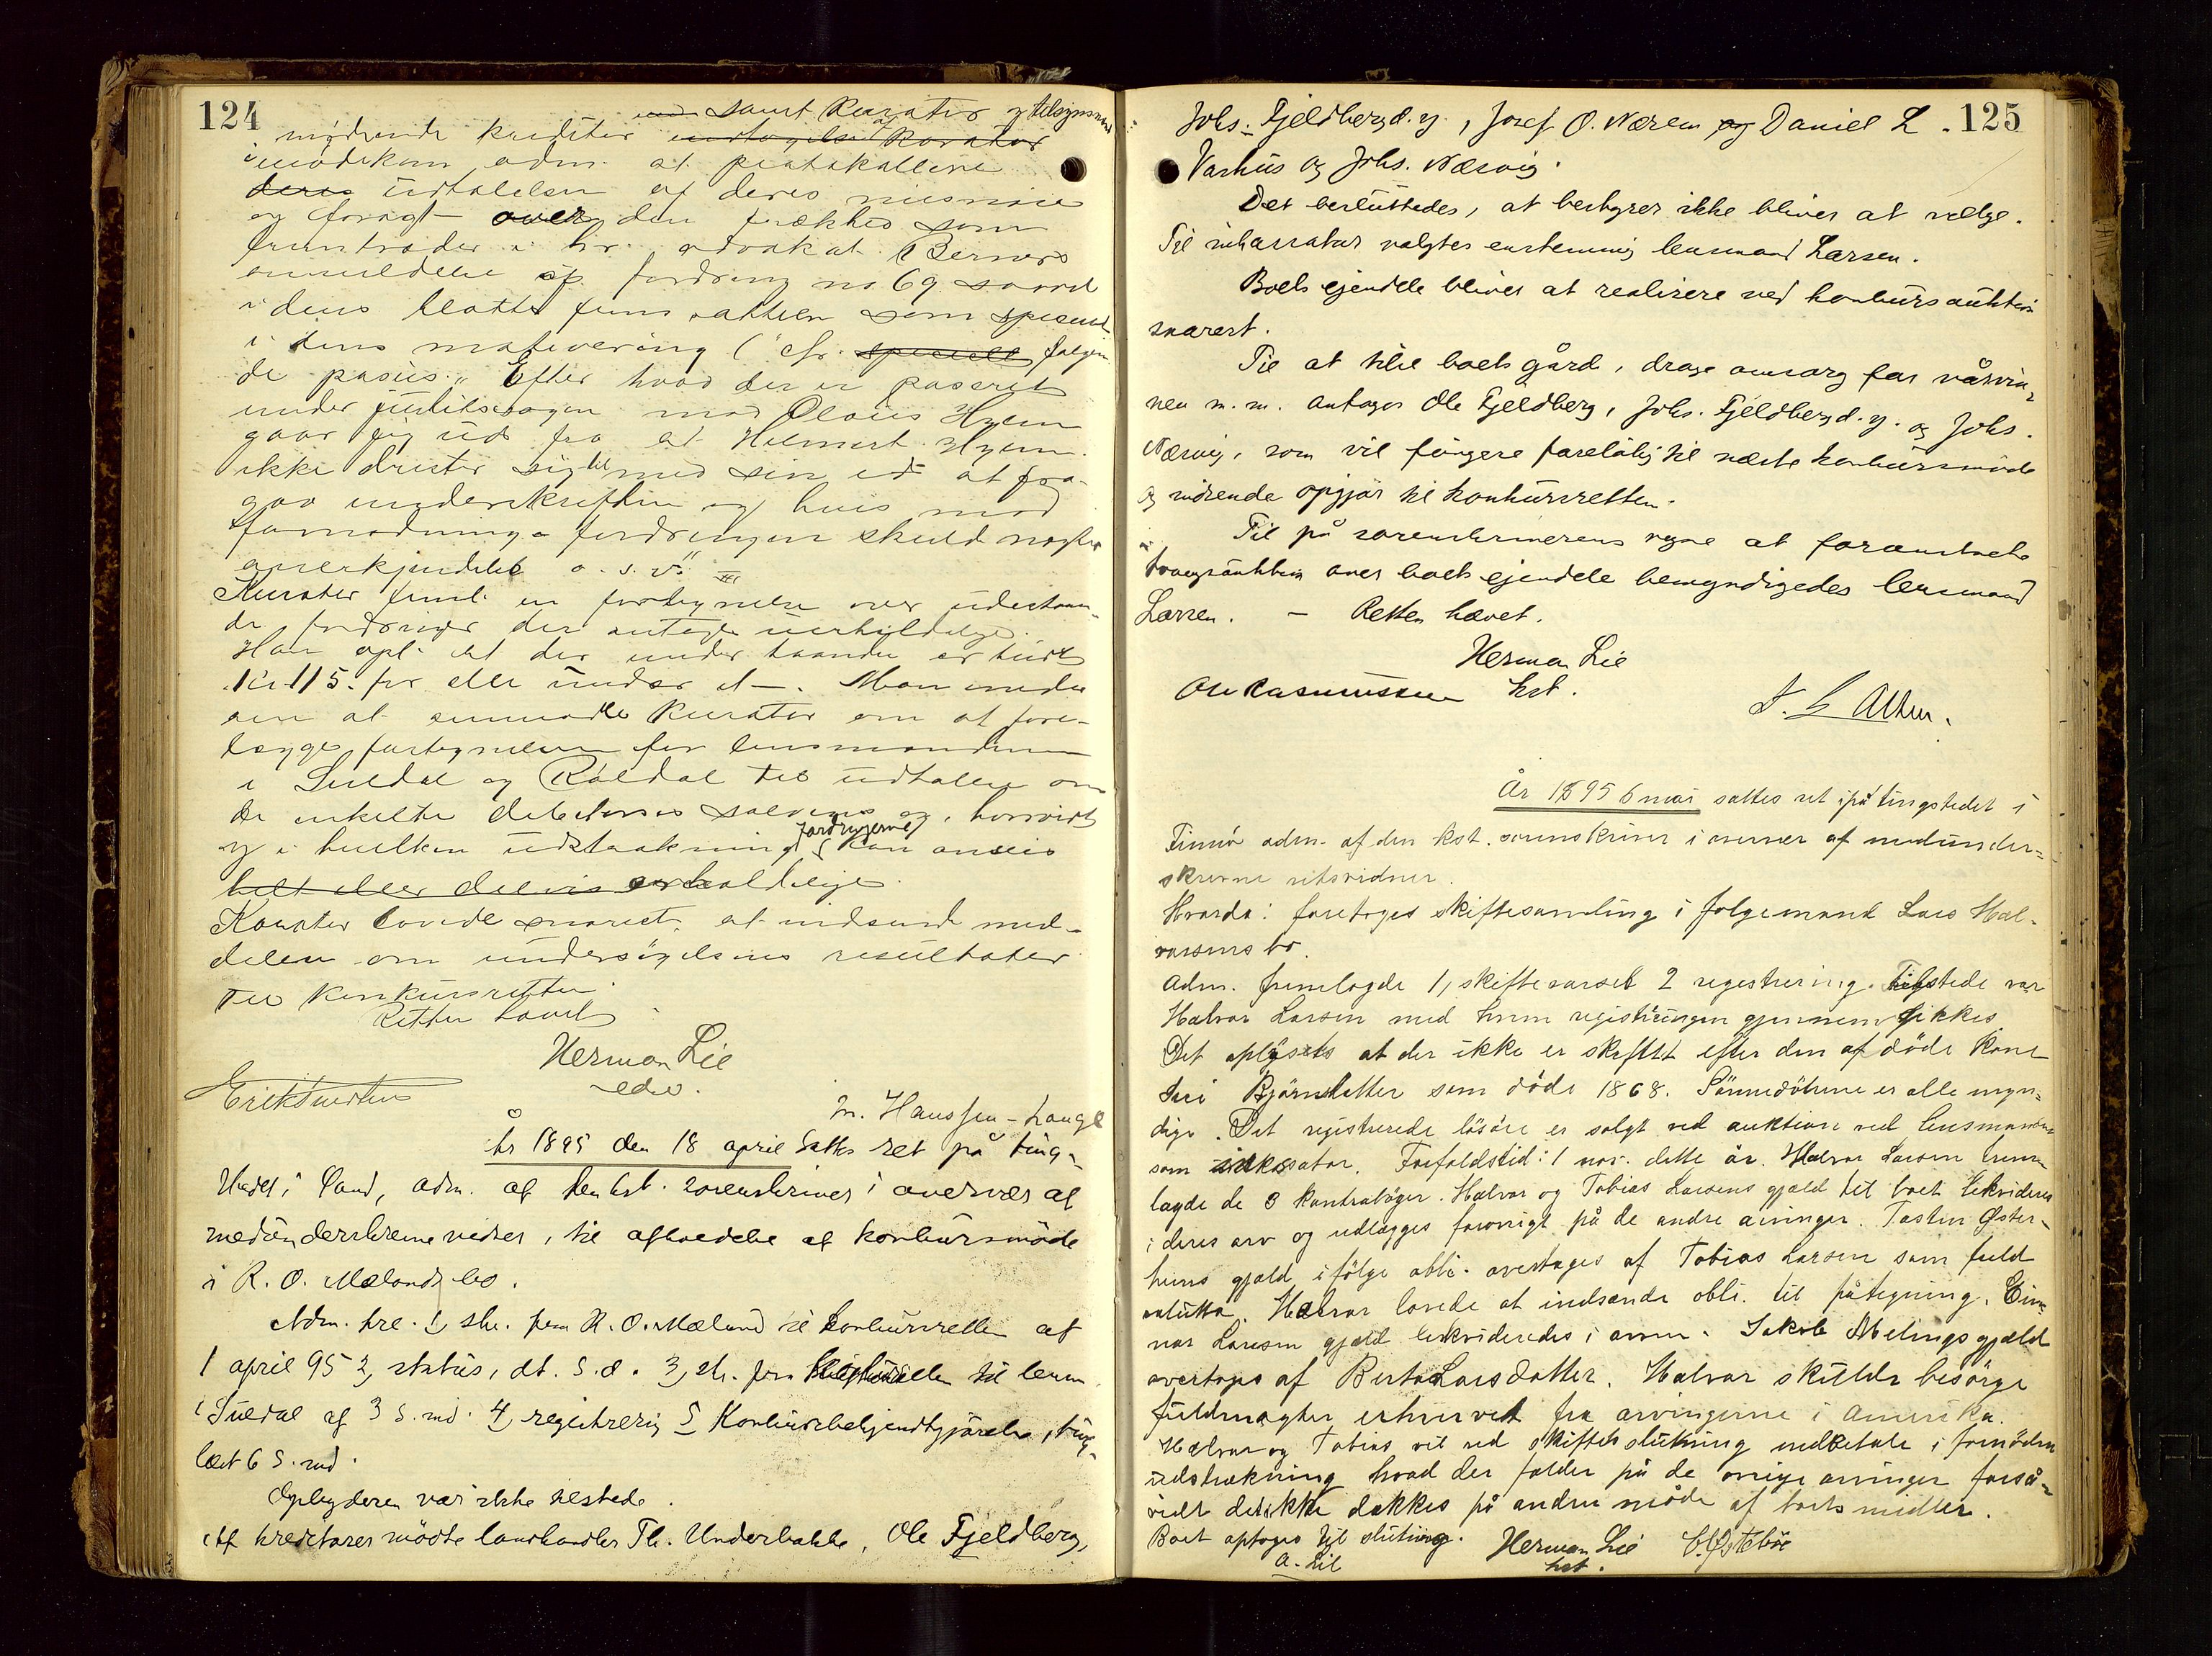 124
samt Kurator og tilsynsmænd
mødende kreditor undtagelse af Kurator
imødekom adm. at protokollere
deres udtalelse af deres misnøie
og foragt over den frækhed som
fremtræder i hr. advokat Berners
anmeldelse af fordring no 69 saavel
i dens blotte fremsættelse som specielt
i dens motivering (cfr. specielt følgen-
de passus: "Efter hvad der er passeret
under justitssagen mod Olaus Hylen
gaar jeg ud fra at Helmert Hylen
ikke drister sig til med sin ed at fra-
gaa underskriften og hvis mod
formodning fordringen skuld nægtes
anerkjendelse o.s.v."
Kurator freml. en fortegnelse over udestaaen-
de fordringer der antages uerholdelige.
Han opl. at der under haanden er budt
Kr 115. for alle under et. Man enedes
om at anmode Kurator om at fore-
lægge fortegnelsen for lensmændene
i Suldal og Røldal til udtalelse om
de enkelte debitorers solvens og, hvorvidt
og i hvilken udstrækning fordringerne kan ansees
helt eller delvis erholdelige.
Kurator lovede snarest at indsende med-
delelse om undersøgelsens resultater
til konkursretten.
Retten hævet
Herman Lie
edsv.
Erik Knudsen
M. Hanssen-Hauge
År 1895 den 18 april sattes ret på ting-
stedet i Sand, adm. af den kst. sorenskriver i overvær af
medunderskrevne vidner, til afholdelse af konkursmøde
i R. O. Mælands bo.
Adm. fre. 1, skr. fra R. O. Mæland til konkursretten af
1 april 95 2, status, dt. s.d. 3, skr. fra skifteretten til lensm.
i Suldal af 3 s. md. 4, registrering 5 Konkursbekjendtgjørelse, ting-
læst 6 s. md.
Opbyderen var ikke tilstede.
Af kreditorer mødte landhandler Th. Underbakke, Ole Fjeldberg,
125
Johs. Fjeldberg d.y., Josef O. Nærem og Daniel L.
Varhus og Johs. Næsvig.
Det besluttedes, at bestyrer ikke bliver at vælge.
Til inkassator valgtes enstemmig lensmand Larsen.
Boets ejendele bliver at realisere ved konkursauktion
snarest.
Til at tilse boets gård, drage omsorg for vårvin-
nen m.m. antages Ole Fjeldberg, Johs. Fjeldberg d.y. og Johs.
Næsvig, som vil fungere foreløbig til næste konkursmøde
og indsende opgjør til konkursretten.
Til på sorenskriverens vegne at foranstalte
tvangsauktion over boets ejendele bemyndigedes lensmand
Larsen. — Retten hævet.
Herman Lie
kst.
Ole Rasmussen
År 1895 6 mai sattes ret på tingstedet i
Finnø adm. af den kst. sorenskriver i overvær af medunder-
skrevne retsvidner.
Hvorda: foretoges skiftesamling i følgemand Lars Hal-
varsens bo.
Adm. fremlagde 1, skiftevarsel 2 registrering. Tilstede var
Halvar Larsen med hvem registreringen gjennemgikkes.
Det oplystes at der ikke er skiftet efter den afdøde kone
Siri Bjørnsdatter som døde 1868. Sønnedøtrene er alle myn-
dige. Det registrerede løsøre er solgt ved auktion ved lensmanden
som inkassator. Forfaldstid: 1 nov. dette år. Halvar Larsen frem-
lagde de 3 kontrabøger. Halvar og Tobias Larsens gjæld til boet likvideres
i deres arv og udlægges forøvrigt på de andre arvinger. Tosten Øster-
hus gjæld ifølge obli. overtages af Tobias Larsen som fuld
valutta. Halvar lovede at indsende obli. til påtegning. Ein-
nar Larsen gjæld likvideredes i arven. Jakob Melings gjæld
overtages af Berta Larsdatter. Halvar skulde besørge
fuldmagter erhvervet fra arvingerne i Amerika.
Halvar og Tobias vil ved skiftets slutning indbetale i fornøden
udstrækning hvad der falder på de øvrige arvinger forså-
vidt det ikke dækkes på anden måde af boets midler.
Boet optages til slutning.
Herman Lie
kst.